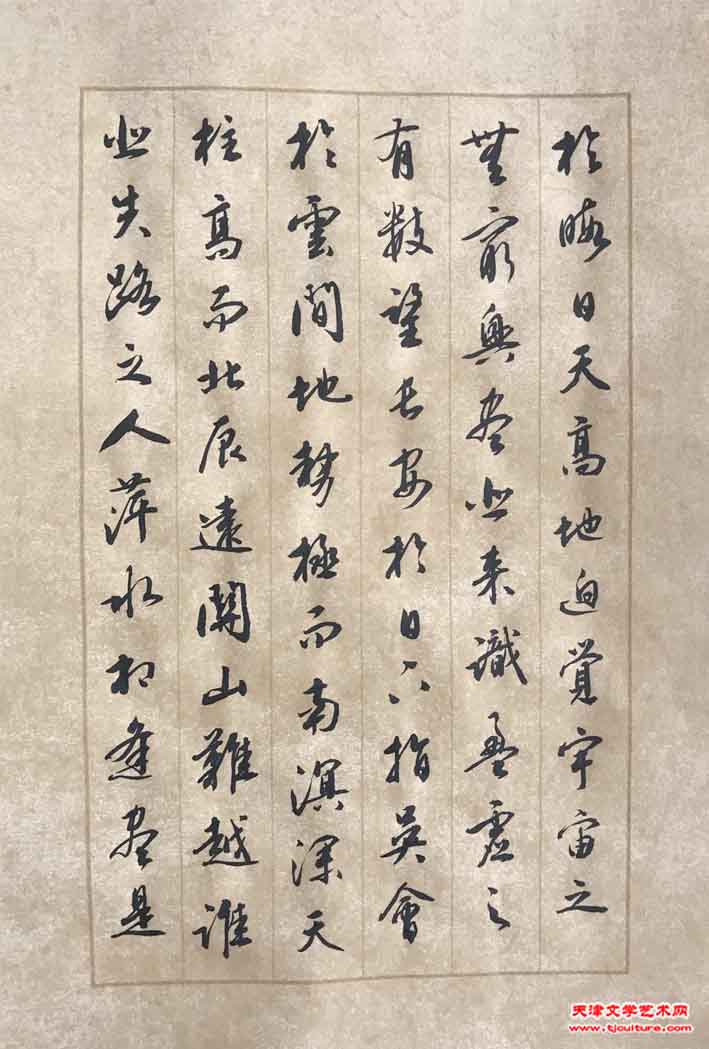 於暇日天高地迥覺宇宙之
無窮興盡悲来識盈虛之
有數望長安於日下指吳會
於雲間地勢極而南溟深天
柱高而北辰遠關山難越誰
悲失路之人萍水相逢盡是
天津文学艺术网
www.tjculture.com